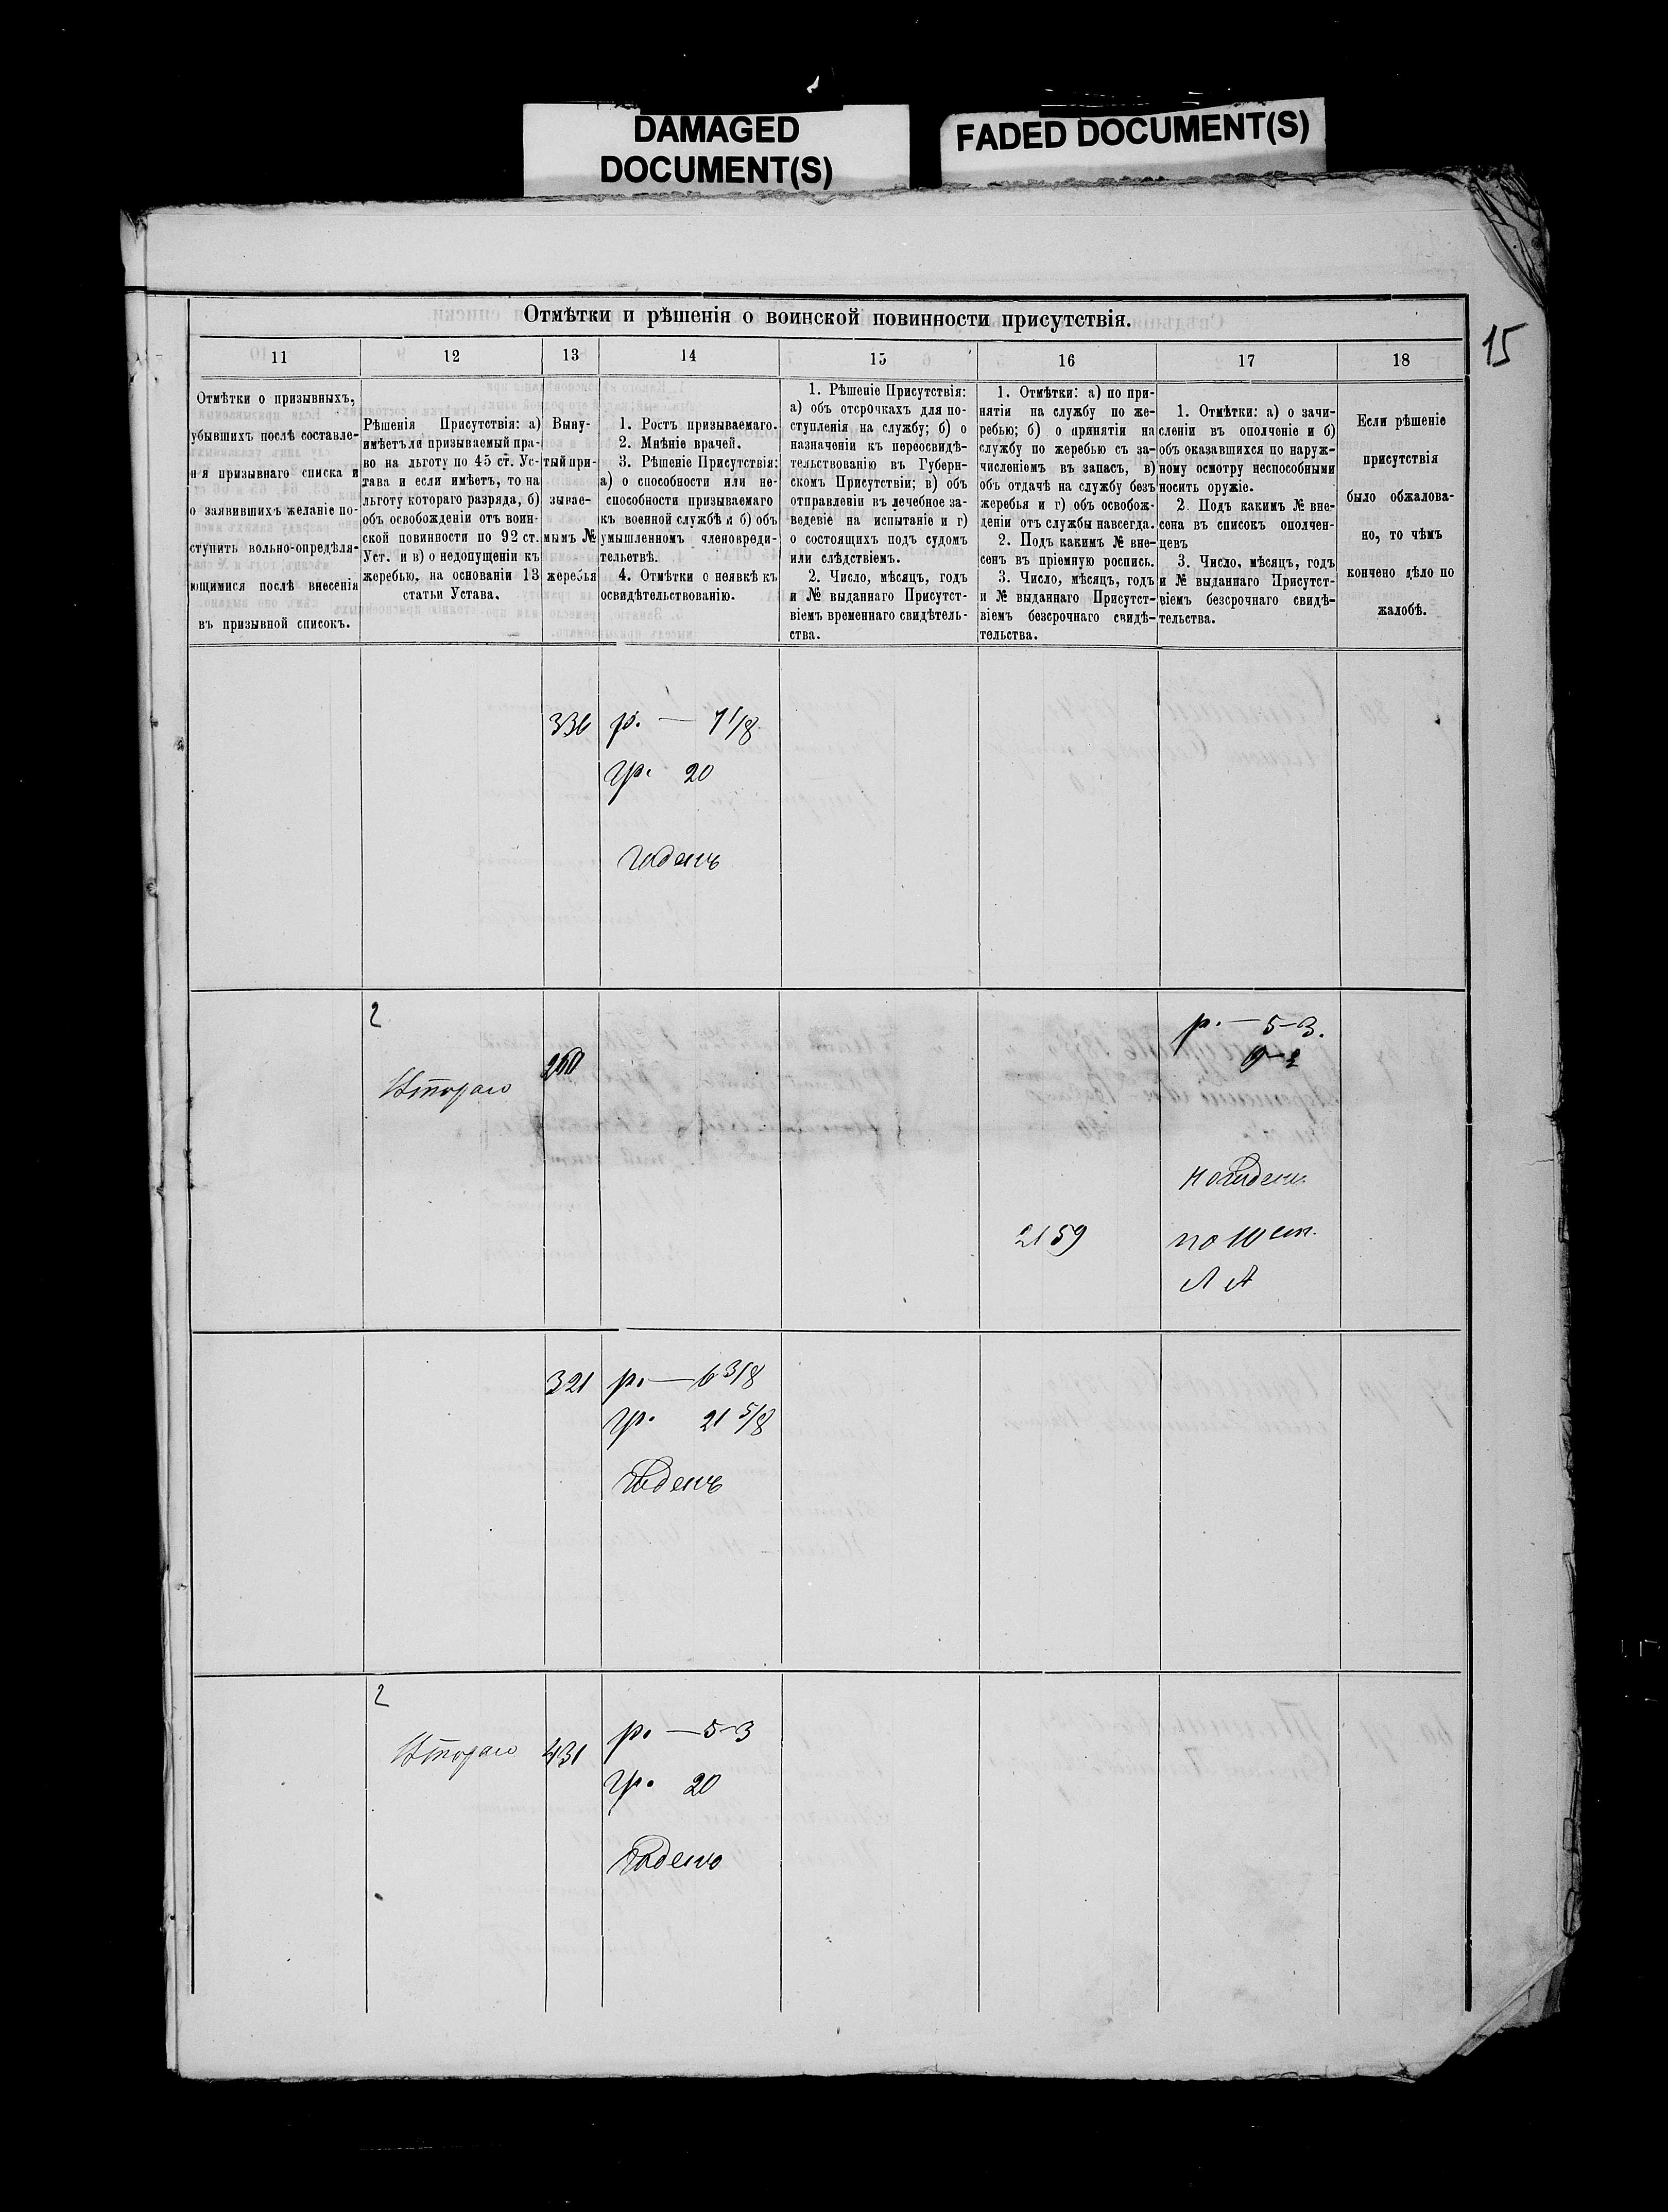 DAMAGED
DOCUMENT(S)
FADED DOCUMENT(S)
15
Отмѣтки и рѣшенія о воинской повинности присутствія.
11 12 13 14 15 16 17 18
Отмѣтки о призывныхъ,
убывшихъ послѣ составле-
н·я призывнаго списка и
о заявившихъ желаніе по-
ступить вольно-опредѣля-
ющимися послѣ внесенія
въ призывной списокъ.
Рѣшенія Присутствія: а)
имѣетъ ли призываемый пра-
во на льготу по 45 ст. Ус-
тава и если имѣетъ, то на
льготу котораго разряда, б)
объ освобожденіи отъ воин-
ской повинности по 92 ст.
Уст. и в) о недопущеніи къ
жеребью, на основаніи 13
статьи Устава.
Выну-
тый при-
зывае-
мымъ №
жеребья
1. Ростъ призываемаго.
2. Мнѣніе врачей.
3. Рѣшеніе Присутствія:
а) о способности или не-
способности призываемаго
къ военной службѣ и б) объ
умышленномъ членовреди-
тельствѣ.
4. Отмѣтки о неявкѣ къ
освидѣтельствованію.
1. Рѣшеніе Присутствія:
а) объ отсрочкахъ для по-
ступленія на службу; б) о
назначеніи къ переосвидѣ-
тельствованію въ Губерн-
скомъ Присутствіи; в) объ
отправленіи въ лечебное за-
веденіе на испытаніе и г)
о состоящихъ подъ судомъ
или слѣдствіемъ.
2. Число, мѣсяцъ, годъ
и № выданнаго Присутст-
віемъ временнаго свидѣтель-
ства.
1. Отмѣтки: а) по при-
нятіи на службу по же-
ребью; б) о принятіи на
службу по жеребью съ за-
численіемъ въ запасъ, в)
объ отдачѣ на службу безъ
жеребья и г) объ освобож-
деніи отъ службы навсегда.
2. Подъ какимъ № вне-
сенъ въ пріемную роспись.
3. Число, мѣсяцъ, годъ
и № выданнаго Присутст-
віемъ безсрочнаго свидѣ-
тельства.
1. Отмѣтки: а) о зачи-
сленіи въ ополченіе и б)
объ оказавшихся по наруж-
ному осмотру неспособными
носить оружіе.
2. Подъ какимъ № вне-
сена въ списокъ ополчен-
цевъ
3. Число, мѣсяцъ, годъ
и № выданнаго Присутст-
віемъ безсрочнаго свидѣ-
тельства.
Если рѣшеніе
присутствія
было обжалова-
но, то чѣмъ
кончено дѣло по
жалобѣ.
336 р. — 7 1/8
гр. 20
Годенъ
2
Втораго
260
р. — 5–3.
2159
по 10 ст.
Л А
321 р. — 6 3/8
гр. 21 5/8
Годенъ
2
Втораго 431 р. — 5–3
гр. 20
Годенъ